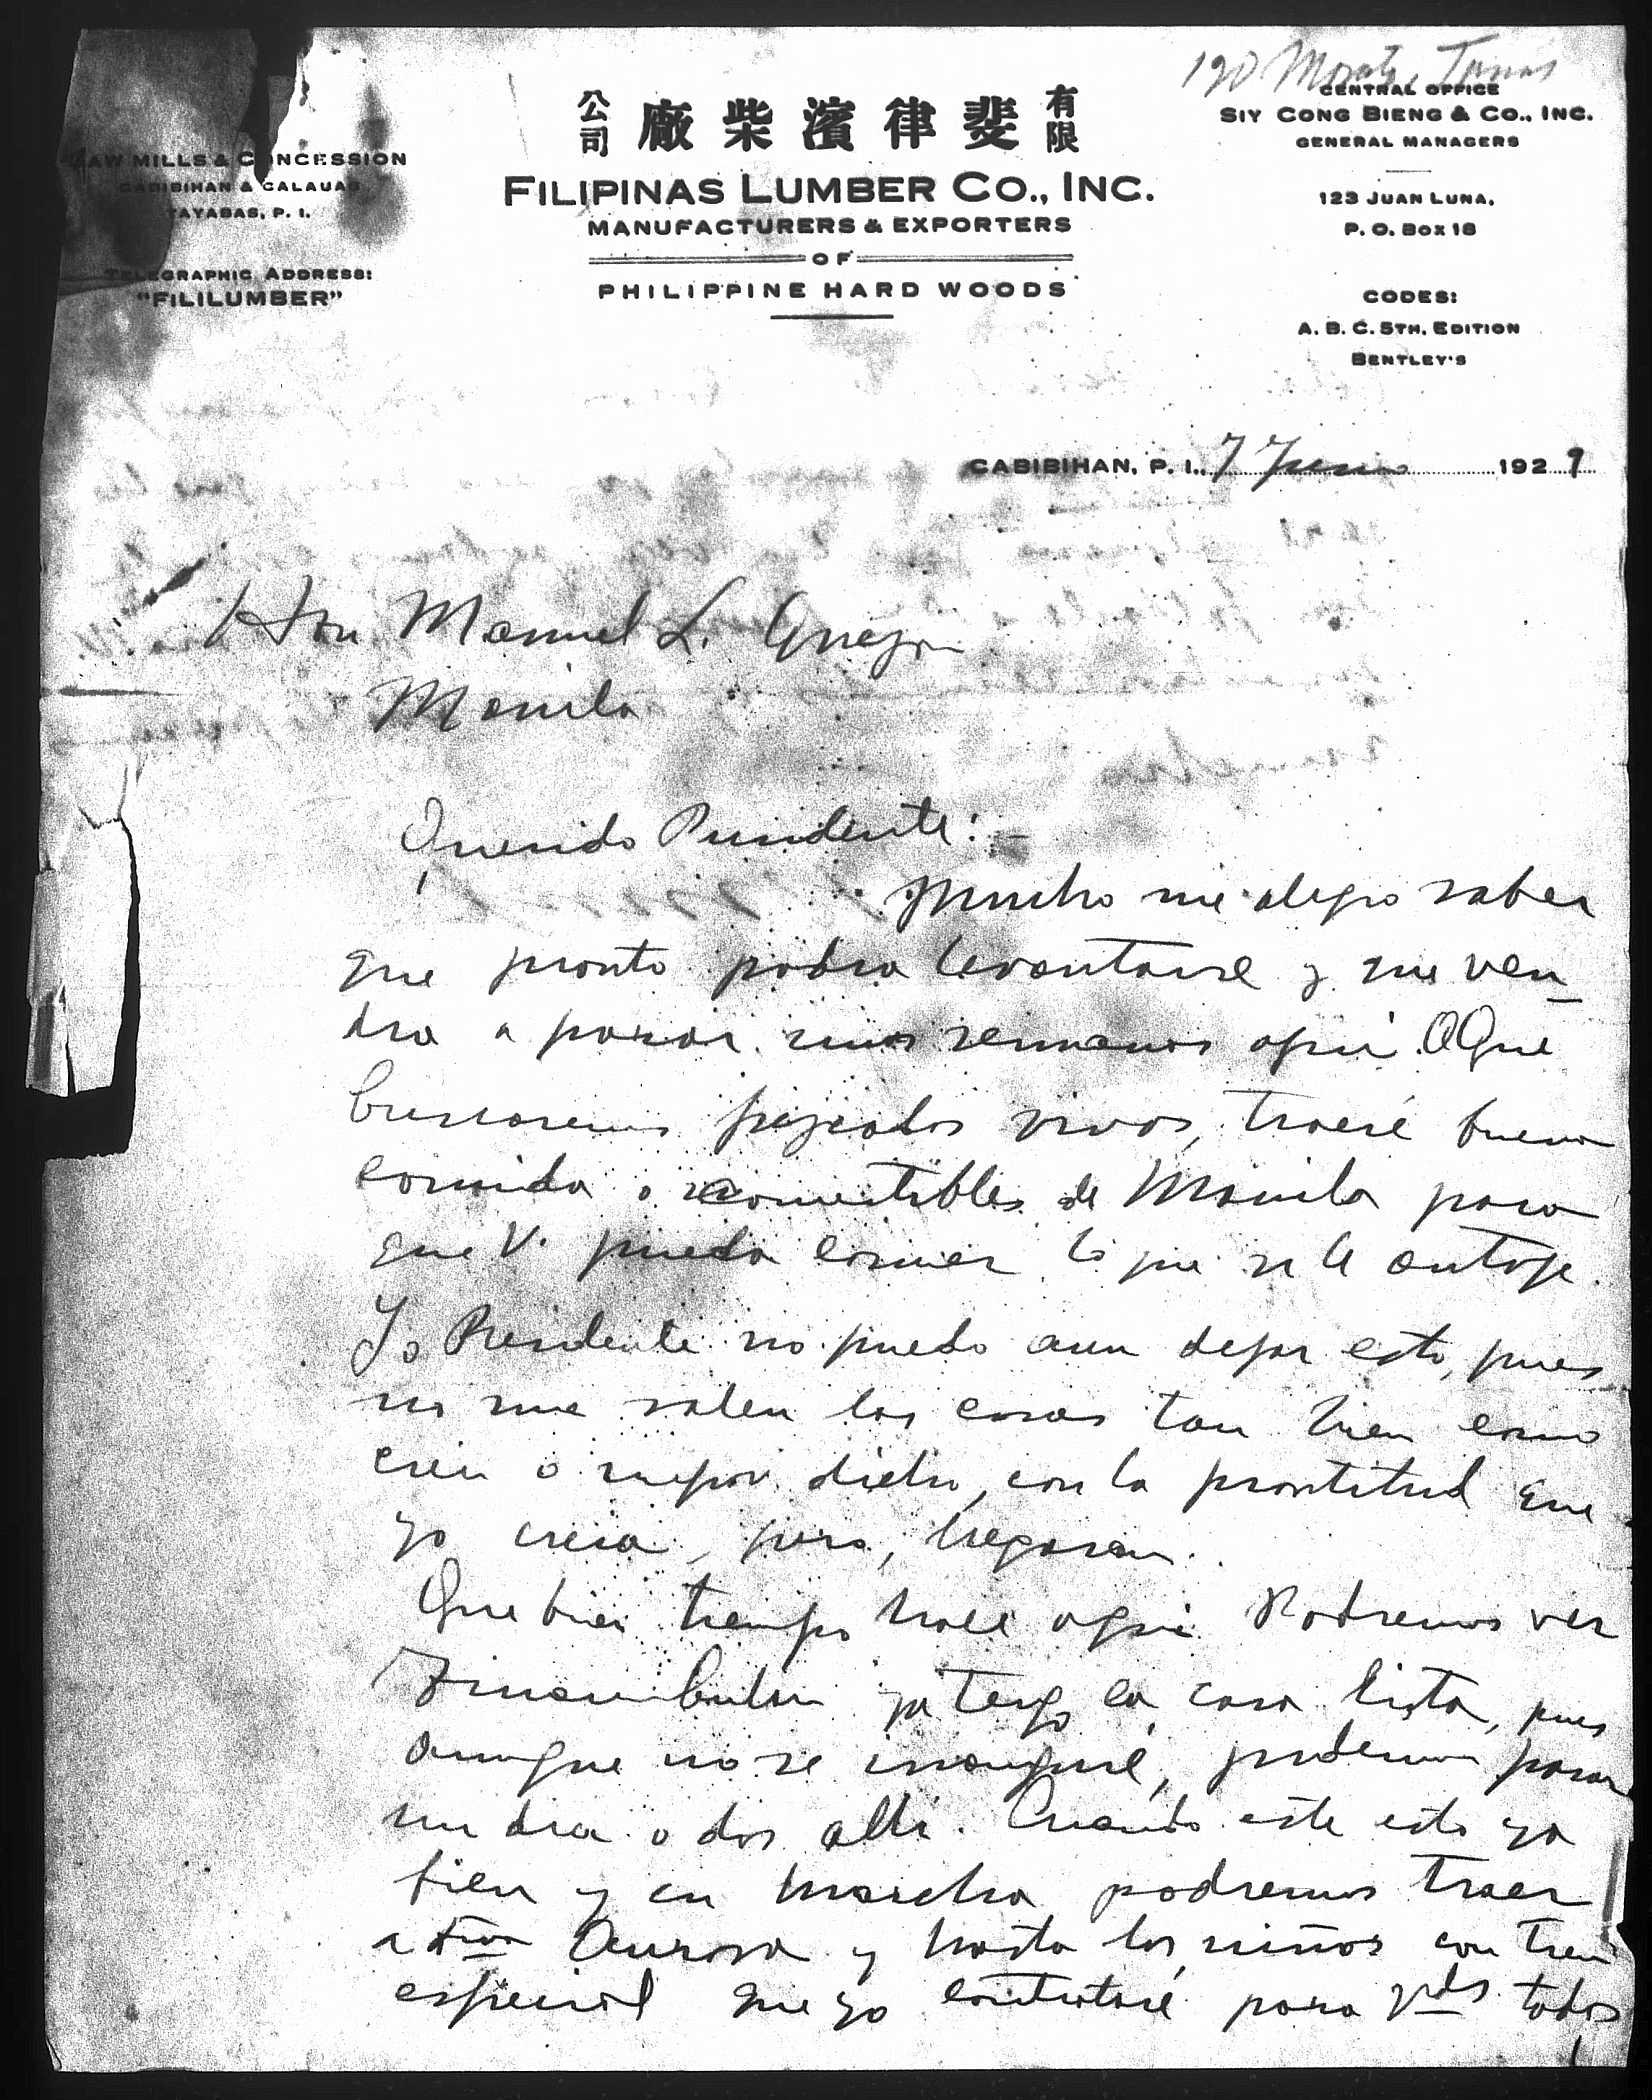 190
CENTRAL OFFICE
SIY CONG BIENG & CO., INC.
GENERAL MANAGERS
123 JUAN LUNA,
P. O. BOX 18
CODES:
A. B. C. 5TH. EDITION
BENTLEY'S
公司 廠柴濱律斐 有限
FILIPINAS LUMBER CO., INC.
MANUFACTURERS & EXPORTERS
OF
PHILIPPINE HARD WOODS
SAW MILLS & CONCESSION
CABIBIHAN & CALAUAG
TAYABAS, P. I.
TELEGRAPHIC ADDRESS:
"FILILUMBER"
CABIBIHAN, P. I., 7 Junio 1929
Hon Manuel L. Quezon
Manila
Querido Presidente:
Mucho me alegro saber
que pronto podra levantarse y que ven-
dra a pasar unas semanas aqui. Que
buscaremos pescados vivos, traeré buena
comida o comestibles de Manila para
que V. pueda comer lo que se le antoje.
Yo Presidente no puedo aun dejar esto, pues
no me salen las cosas tan bien como
crei o mejor dicho, con la prontitud que
yo creia, pero, llegaran.
Que buen tiempo hace aqui. Podremos ver
ya tengo la casa lista, pues
aunque no se inaugure, podemos pasar
un dia o dos alli. Cuando este esto ya
bien y en marcha podremos traer
a Dña Aurora y hasta los niños con tren
especial que yo contrataré para Vds todos